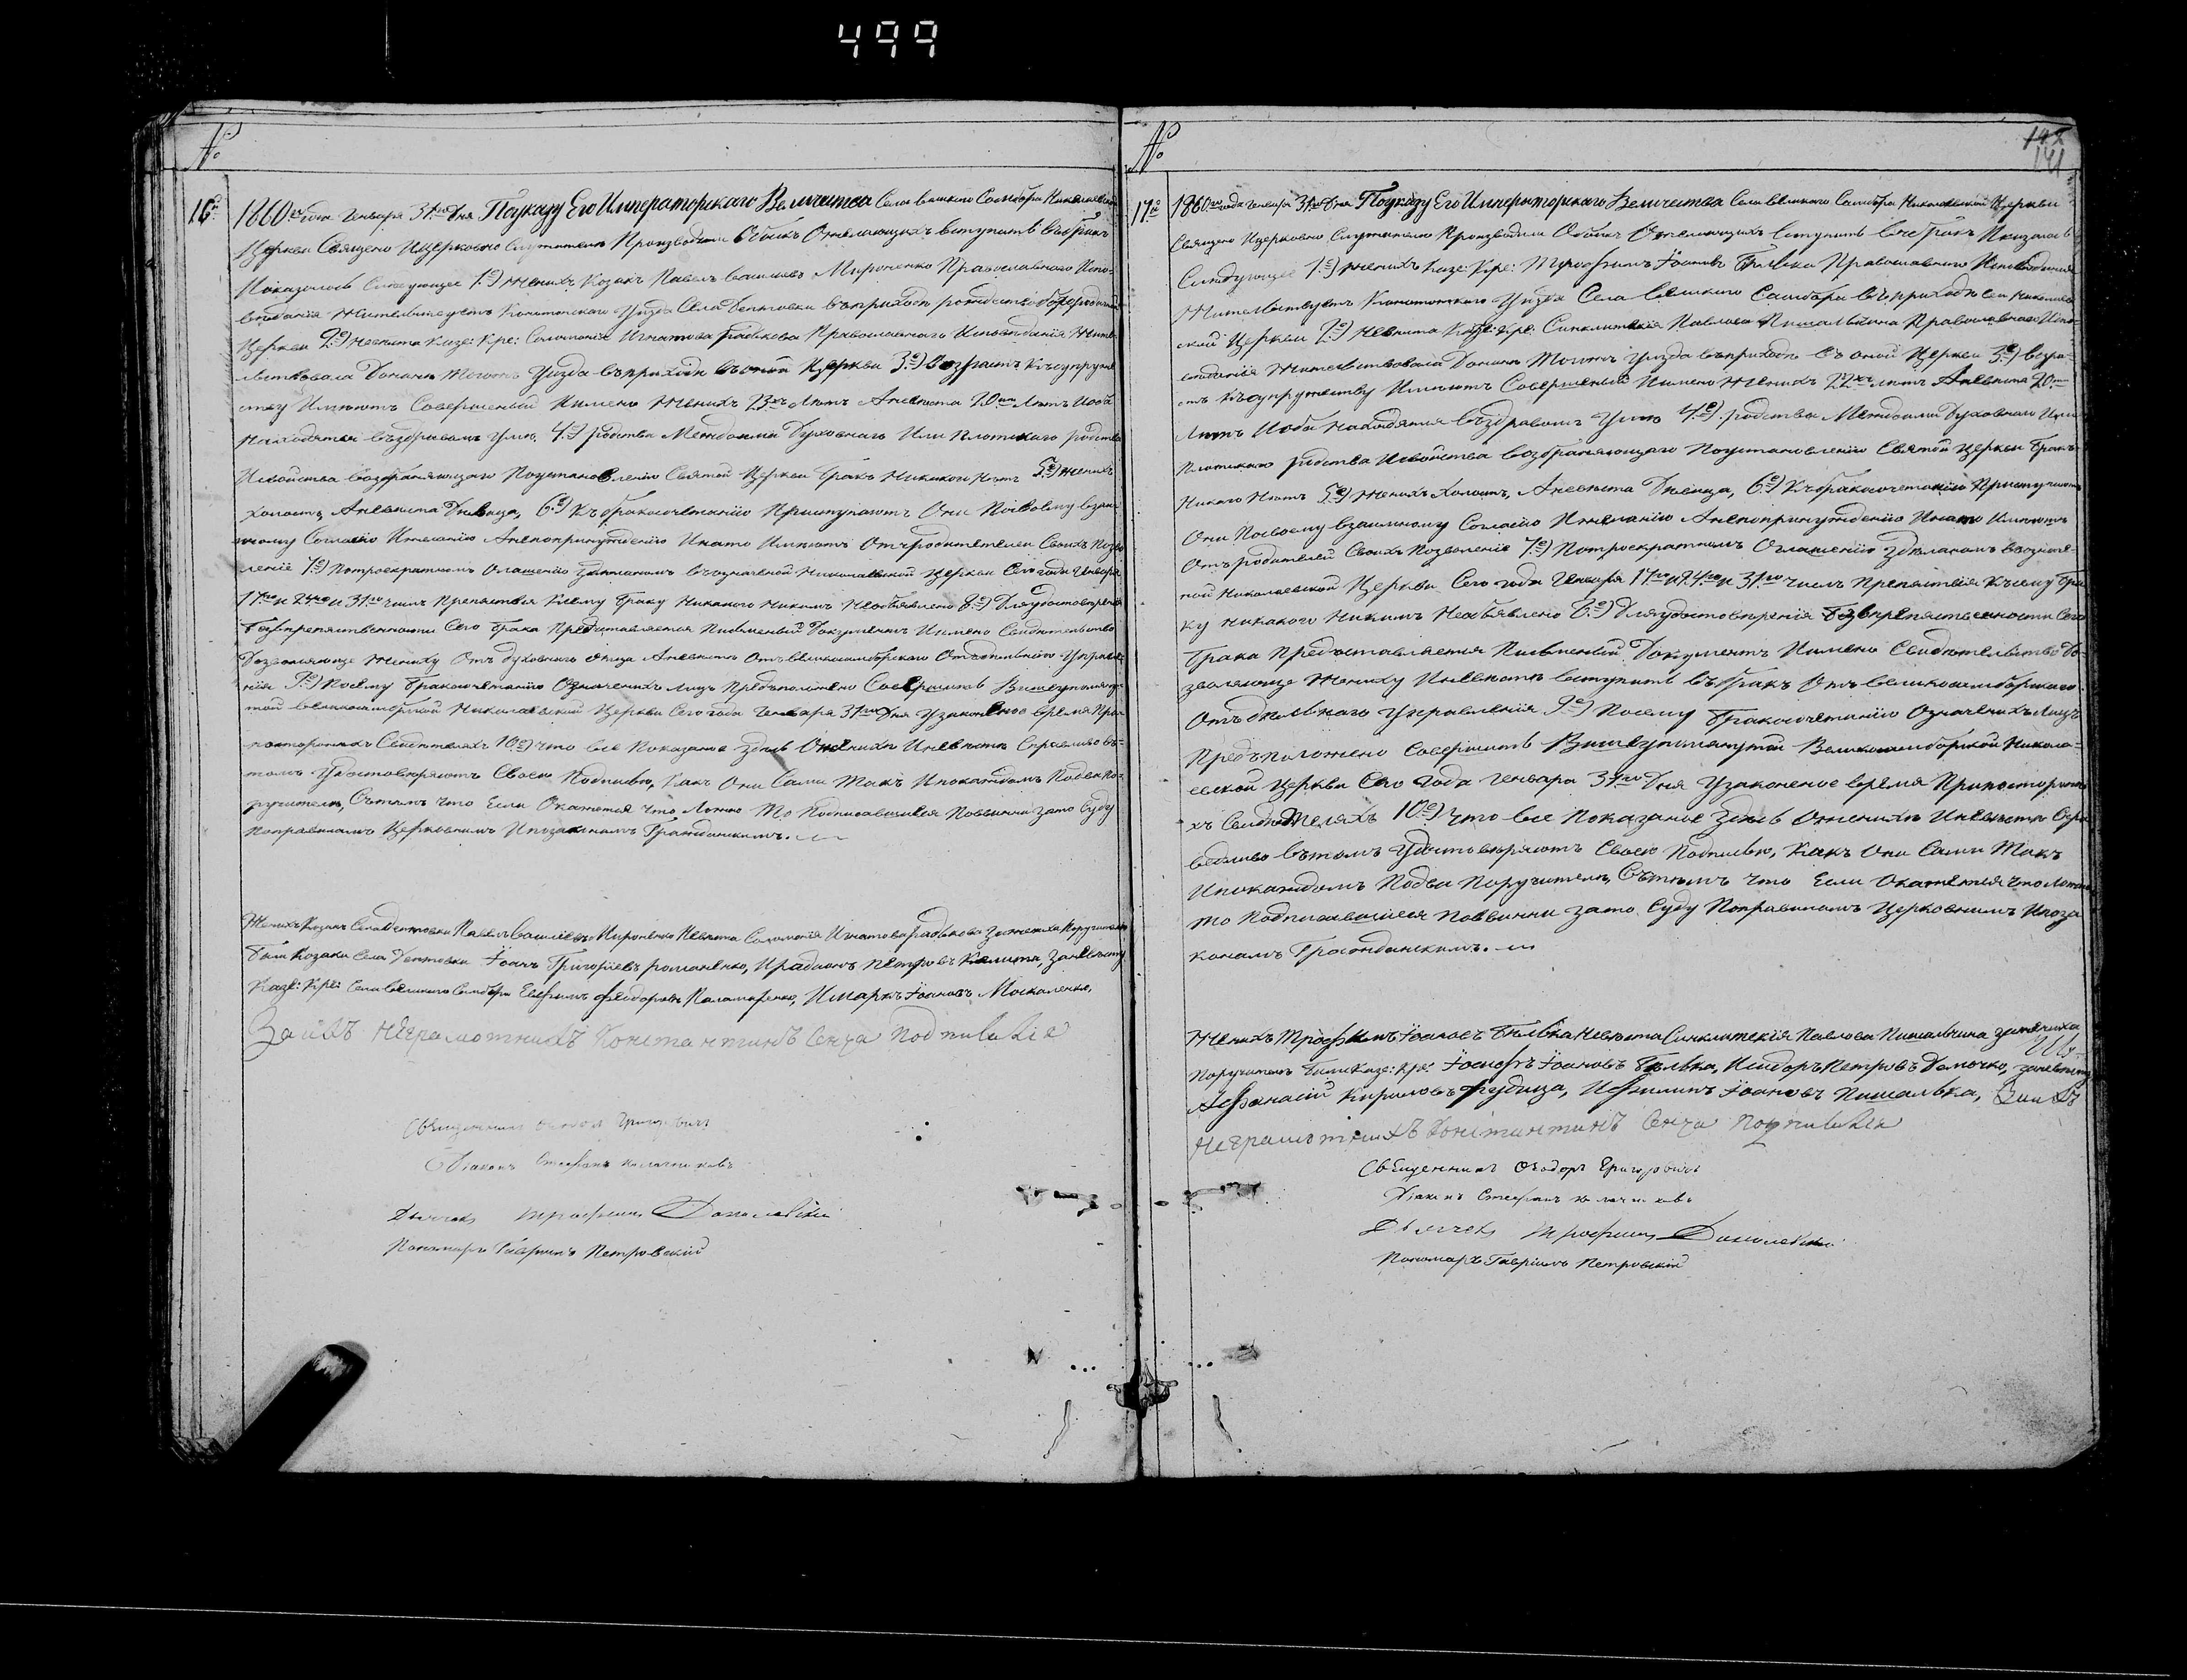 499
№
16е
1860го года Генваря 31го Дня По указу Его Императорскаго Величества Села великого Самбора Николаевской
Церкви Священо Ицерковно Служители Производили Обыск Ожелающихъ вступить въ бракъ
Показалось Следующее 1е) Женихъ Козакъ Павелъ васильевъ Мироненко Православнаго Испо-
веданія Жительствуетъ Конотопского Уезда Села Дептовки въ приходе рождество богородичной
Церкви 2е) Невеста Казе: Кре: Соломонія Игнатова радькова Православнаго Исповеданія Житель
льствовала Донине Тогожъ Уезда въ приходе въ оной Церкви 3е) возрастъ Къ супруже
ству Имеютъ Совершеный Имено Женихъ 23хъ Летъ Аневеста 20ти Летъ Иоба
Находятся въ здравомъ Уме 4е) родства Междоими Духовнаго Или Плотскаго родства
Исвойства возбраняющаго По установленію Святой Церкви бракъ Никакого Нетъ 5е) Женихъ
Холостъ, Аневеста Девица, 6е) Къ бракосочетанію Приступаютъ Они По Своему взаи-
мному Согласію Ижеланію Анепопринужденію Инато Имеютъ Отъ родителей Своихъ Позво
леніе 7е) Потроекратномъ Оглашенію Зделаномъ въ означеной Николаевской Церкви Сего года Генваря
17го и 24го и 31го числъ Препятствія Ксему браку Никакого Никимъ Необъявлено 8е) Для удостоверенія
Безпрепятственности Сего брака Представляется Письменый Документъ Имено Свидетельство
Дозволяюще Жениху Отъ Духовнаго Отца Аневесте Отъ Великосамборского Отдельнаго Управле
нія 9е) Посему бракосочетанію Означенихъ лицъ Предположено Совершить Вишеупомяну-
той великосамборской Николаевской Церкви Сего года Генваря 31го Дня Узаконеное время При
постороннихъ Свидетеляхъ 10е) что все Показаное здесь Ожених Иневесте Справливо въ-
томъ Удостоверяютъ Своею Подписью, Какъ Они Сами Такъ Ипокаждомъ Подва По-
ручителя, Стемъ что Если Окажется Что Ложно То Подписавшиися Повинни зато Суду
По правиламъ Церковнимъ Ипозаконамъ Гражданскимъ.
Женихъ Козакъ Села Дептовки Павелъ васильевъ Мироненко Невеста Соломонія Игнатова радькова Зажениха Поручители
Били Козаки Села Дептовки Іоанъ Григоріевъ романенко, Иродіонъ Петровъ Калита, Заневесту
Казе: Кре: Села великого Самбора Евфимъ Феодоровъ Паламаренко, Имаркъ Іоановъ Москаленко,
За ихъ неграмотнихъ Константинъ Сенча подписался
Священникъ Феодоръ Григоровичъ
Діаконъ Стефанъ Калачниковъ
Дьячекъ Трофимъ
Пономаръ Гавріилъ Петровскій
№
141
17е
1860го года Генваря 31го Дня По указу Его Императорскаго Величества Села великого Самбора Николаевской Церкви
Священо Ицерковно Служители Производили Обыск Ожелающихъ вступить въ бракъ Показалось
Следующее 1е) Женихъ Казе: Кре: Трофимъ Іоановъ Билька Православнаго Исповеданія
Жительствуетъ Конотопского Уезда Села великого Самбора въ приходе Николаев
ской Церкви 2е) Невеста Казе: Кре: Синклитекія Павлова Пишальчина Православнаго Испо-
веданія Жительствовала Донине Тогожъ Уезда въ приходе въ оной Церкви 3е) возра-
стъ Къ супружеству Имеютъ Совершеный Имено Женихъ 22хъ летъ Аневеста 20ти
Летъ Иоба Находятся въ здравомъ Уме 4е) родства Междоими Духовнаго Или
Плотскаго родства Исвойства возбраняющаго По установленію Святой Церкви бракъ
Никого Нетъ 5е) Женихъ Холостъ, Аневеста Девица, 6е) Къ бракосочетанію Приступаютъ
Они По своему взаимному Согласію Ижеланію Анепопринужденію Инато Имеютъ
Отъ родителей Своихъ Позволеніе 7е) Потроекратномъ Оглашенію Зделаномъ возначе-
ной Николаевской Церкви Сего года Генваря 17го и 24го и 31го числъ Препятствія Ксему бра
ку Никакого Никимъ Необъявлено 8е) Для удостоверенія Безпрепятственности Сего
брака Предъставляется Письменый Документъ Имено Свидетельство До-
зволяюще Жениху Иневесте вступить въ бракъ Отъ Великосамборского
Отъдельнаго Управленія 9е) Посему бракосочетанію Означенихъ Лицъ
Предъположено Совершить Вишеупомянутой Великосамборской Никола-
евской Церкви Сего года Генвара 31го Дня Узаконеное время Припосторонни
хъ Свидетеляхъ 10е) Что все Показаное Здесь Оженихе Иневесте Спра
ведливо въ томъ Удостоверяютъ Своею Подписью, Какъ Они Сами Такъ
Ипокаждомъ Подва Поручителя, Стемъ что Если Окажется Что Ложно
То Подписавшиися Повинни зато Суду По правиламъ Церковнимъ Ипоза
конамъ Гражданскимъ.
Женихъ Трофимъ Іоановъ Билька Невеста Синклитекія Павлова Пишальчина Зажениха
Поручители Били Казе: Кре: Іосифъ Іоановъ Билька, Исидоръ Петровъ Демочко, Заневесту
Афанасій Кириловъ Иефимъ Іоановъ Пишалька, За ихъ
Неграмотнихъ Константинъ Сенча подписался
Священникъ Феодоръ Григоровичъ
Діаконъ Стефанъ Калачниковъ
Дьячекъ Трофимъ
Пономаръ Гавріилъ Петровскій